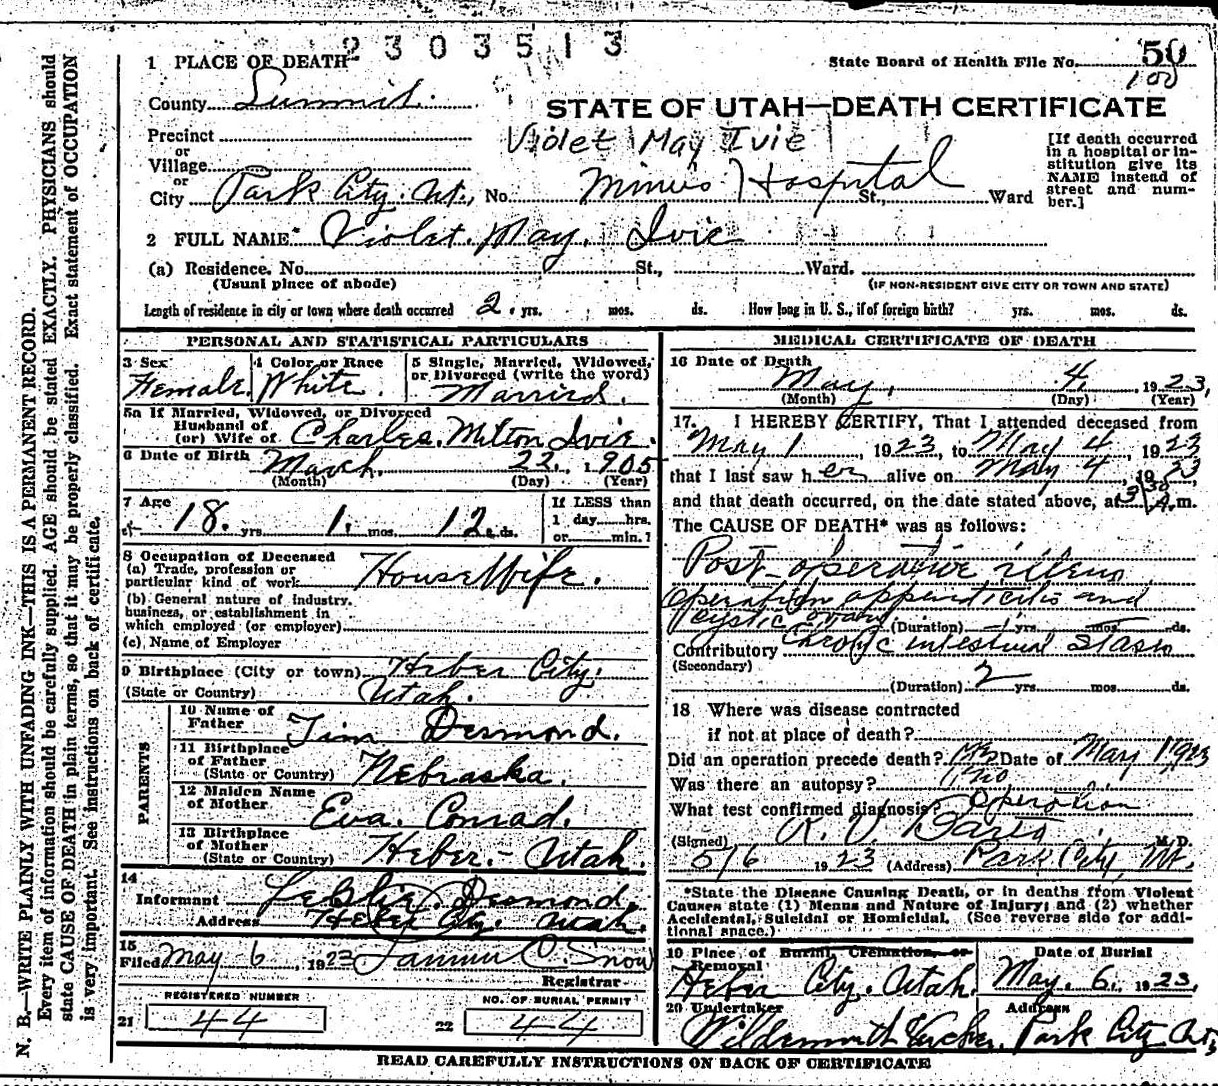 2303513
1 PLACE OF DEATH
State Board of Health File No. 50
100
County Summit.
STATE OF UTAH—DEATH CERTIFICATE
Precinct
Violet May Ivie
or
Village
or
City Park City. Ut., No. Miners Hospital St., Ward
[If death occurred
in a hospital or in-
stitution give its
NAME instead of
street and num-
ber.]
2 FULL NAME* Violet. May. Ivie
(a) Residence. No. St., Ward.
(Usual place of abode)
(IF NON-RESIDENT GIVE CITY OR TOWN AND STATE)
Length of residence in city or town where death occurred 2. yrs. mos. ds. How long in U. S., if of foreign birth? yrs. mos. ds.
PERSONAL AND STATISTICAL PARTICULARS
3 Sex
Female.
4 Color or Race
White.
5 Single, Married, Widowed,
or Divorced (write the word)
Married.
5a If Married, Widowed, or Divorced
Husband of
(or) Wife of Charles. Milton Ivie.
6 Date of Birth March. 22, 1905
(Month) (Day) (Year)
7 Age
18. yrs 1. mos. 12. ds.
If LESS than
1 day......hrs.
or......min.?
8 Occupation of Deceased
(a) Trade, profession or
particular kind of work Housewife.
(b) General nature of industry,
business, or establishment in
which employed (or employer)
(c) Name of Employer
9 Birthplace (City or town) Heber City.
(State or Country) Utah.
PARENTS
10 Name of
Father Tim Desmond.
11 Birthplace
of Father
(State or Country) Nebraska.
12 Maiden Name
of Mother Eva. Conrad.
13 Birthplace
of Mother
(State or Country) Heber.- Utah.
14
Informant Leslie. Desmond.
Address Heber City. Utah.
15
Filed May 6, 1923 O. Snow
Registrar
REGISTERED NUMBER
21 44
NO. OF BURIAL PERMIT
22 44
MEDICAL CERTIFICATE OF DEATH
16 Date of Death
May, 4, 1923,
(Month) (Day) (Year)
17. I HEREBY CERTIFY, That I attended deceased from
May 1, 1923, to May 4, 1923
that I last saw her alive on May 4, 1923
and that death occurred, on the date stated above, at 3 30 A.m.
The CAUSE OF DEATH* was as follows:
Post-operative illeus
Operation appendicitis and
cystic ovary (Duration) 1 yrs. mos. ds.
Contributory Chronic intestinal stasis
(Secondary)
(Duration) 2 yrs. mos. ds.
18 Where was disease contracted
if not at place of death?
Did an operation precede death? yes Date of May 1 1923
Was there an autopsy? no
What test confirmed diagnosis? Operation
(Signed) M. D.
5/6 1923 (Address) Park City, Ut.
*State the Disease Causing Death, or in deaths from Violent
Causes state (1) Means and Nature of Injury; and (2) whether
Accidental, Suicidal or Homicidal. (See reverse side for addi-
tional space.)
19 Place of Burial, Cremation, or
Removal
Heber City. Utah.
Date of Burial
May. 6. 1923.
20 Undertaker
Address
Park City Ut.
READ CAREFULLY INSTRUCTIONS ON BACK OF CERTIFICATE
N. B.—WRITE PLAINLY WITH UNFADING INK—THIS IS A PERMANENT RECORD.
Every item of information should be carefully supplied. AGE should be stated EXACTLY. PHYSICIANS should
state CAUSE OF DEATH in plain terms, so that it may be properly classified. Exact statement of OCCUPATION
is very important. See instructions on back of certificate.